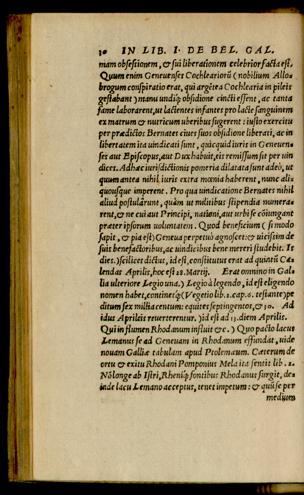 30 IN LIB. I. DE BEL. GAL.
mam obsessionem, & sui liberationem celebrior facta est.
Quum enim Geneuenses Cochleariorū (nobilium Allo
brogum conspiratio erat, qui argētea Cochlearia in pileis
gestabant) manu undiq; obsidione cincti essent, ac tanta
fame laborarent, ut lactentes infantes pro lacte sanguinem
ex matrum & nutricum uberibus sugerent: iusto exercitu
per prædictos Bernates ciues suos obsidione liberati, ac in
libertatem ita uindicati sunt, quicquid iuris in Geneuen
ses aut Episcopus, aut Dux habuit, eis remissum sit per uin
dices. Adhæc iurisdictionis pomeria dilatata sunt adeò, ut
quum antea nihil iuris extra mœnia haberent, nunc ali
quousque imperent. Pro qua uindicatione Bernates nihil
aliud postulârunt, quàm ut militibus stipendia numera
rent, & ne cui aut Principi, nationi, aut urbi fœ coniungant
præter ipsorum uoluntatem. Quod beneficium (si modo
sapit, & pia est) Geneua perpetuò agnoscet: & uicissim de
suis benefactoribus, ac uindicibus bene mereri studebit. Is
dies.) scilicet dictus, id est, constitutus erat ad quintū Ca
lendas Aprilis, hoc est 28. Martij. Erat omnino in Gal
lia ulteriore Legio una.) Legio à legendo, id est eligendo
nomen habet, continetq; (Vegetio lib. 2. cap. 6. testante) pe
ditum sex millia centum: equites septingentos, & 30. Ad
idus Aprilis reuerterentur.) id est ad 13. diem Aprilis.
Qui in flumen Rhodanum influit &c.) Quo pacto lacus
Lemanus se ad Geneuam in Rhodanum effundat, uide
nouam Galliæ tabulam apud Ptolemæum. Cæterum de
ortu & exitu Rhodani Pomponius Mela ita sentit lib. 2.
Nō longe ab Istri, Rheniq; fontibus Rhodanus surgit, de=
inde lacu Lemano acceptus, tenet impetum: & quū se per
medium